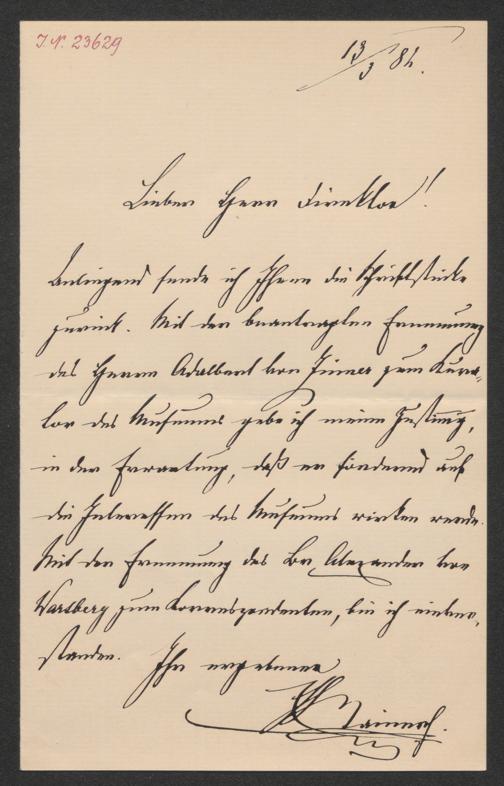 J.N. 23629
13/3 84.
Lieber Herr Direktor!
Anliegend sende ich Ihnen die Schriftstücke
zurück. Mit der beantragten Ernennung
des Herrn Adalbert von
zum Kura-
tor des Museums gebe ich meine Zustimg,
in der Erwartung, daß er fördernd auf
die Interessen des Museums wirken werde.
Mit der Ernennung des Br. Alexander von
Warsberg zum Korrespondenten, bin ich einver-
standen. Ihr ergebener